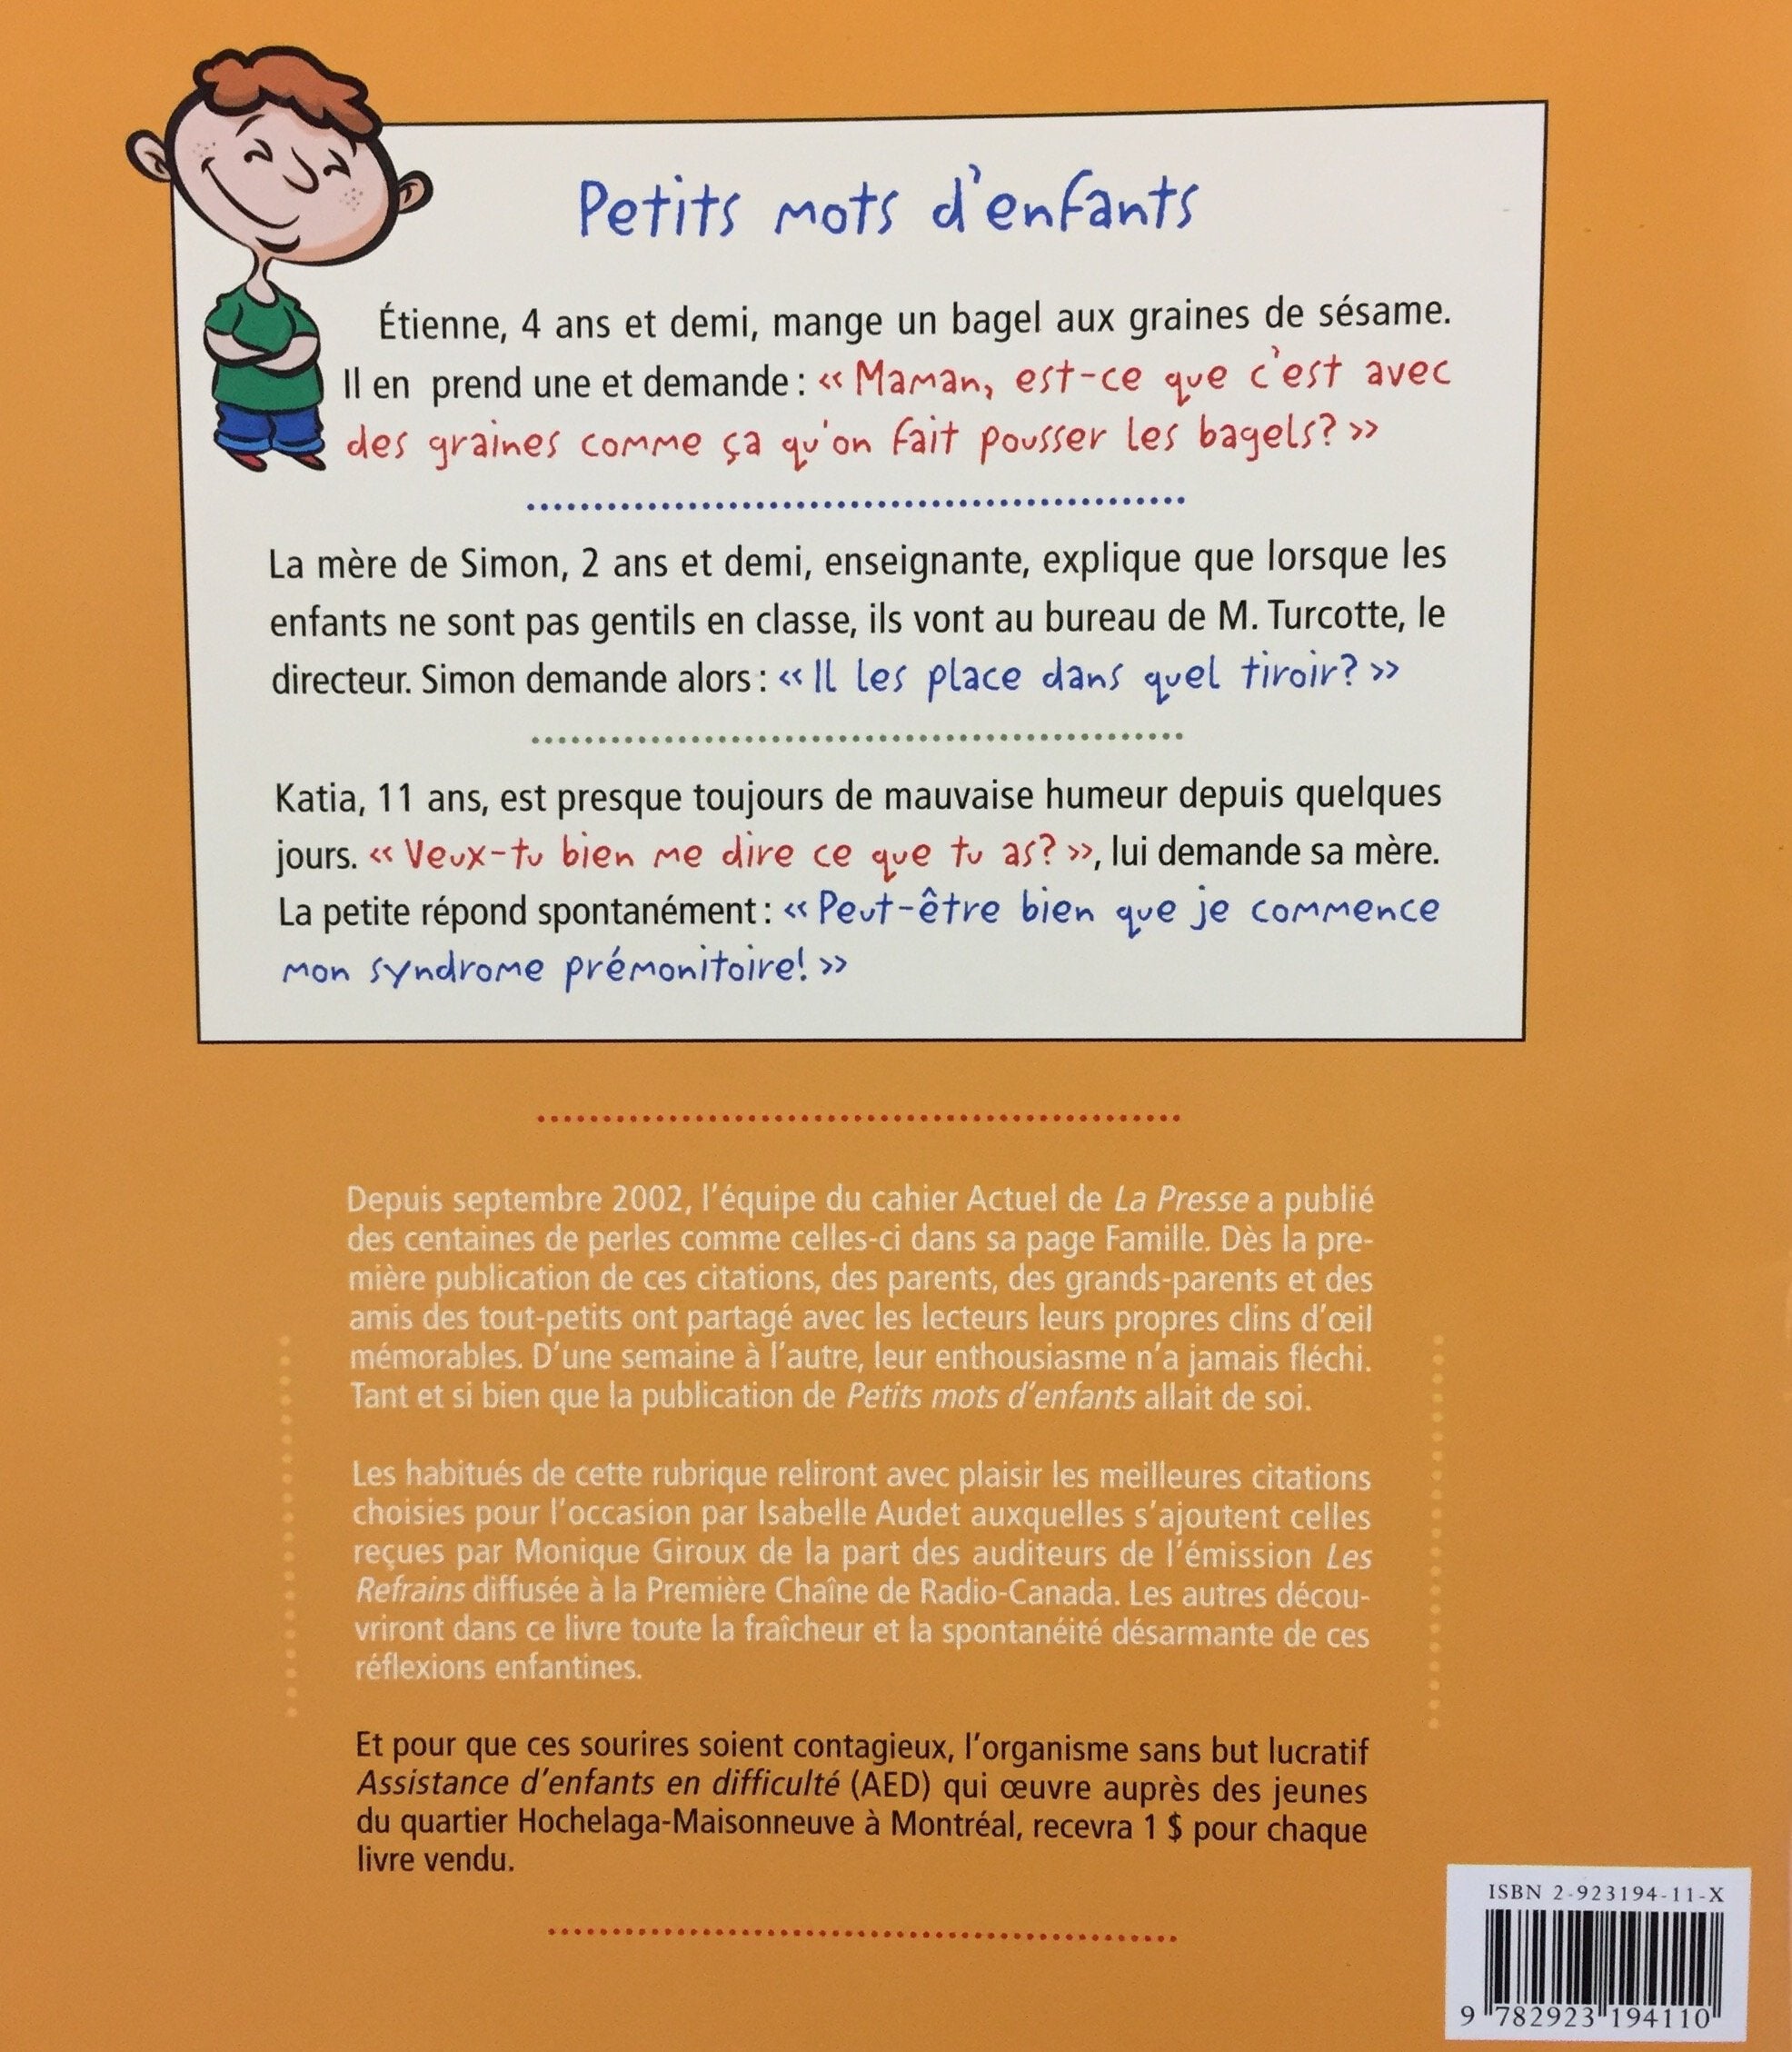 Petits mots d'enfants
Étienne, 4 ans et demi, mange un bagel aux graines de sésame.
Il en prend une et demande : « Maman, est-ce que c'est avec
des graines comme ça qu'on fait pousser les bagels? »
La mère de Simon, 2 ans et demi, enseignante, explique que lorsque les
enfants ne sont pas gentils en classe, ils vont au bureau de M. Turcotte, le
directeur. Simon demande alors : « Il les place dans quel tiroir? »
Katia, 11 ans, est presque toujours de mauvaise humeur depuis quelques
jours. « Veux-tu bien me dire ce que tu as? », lui demande sa mère.
La petite répond spontanément : « Peut-être bien que je commence
mon syndrome prémonitoire! »
Depuis septembre 2002, l'équipe du cahier Actuel de La Presse a publié
des centaines de perles comme celles-ci dans sa page Famille. Dès la pre-
mière publication de ces citations, des parents, des grands-parents et des
amis des tout-petits ont partagé avec les lecteurs leurs propres clins d'œil
mémorables. D'une semaine à l'autre, leur enthousiasme n'a jamais fléchi.
Tant et si bien que la publication de Petits mots d'enfants allait de soi.
Les habitués de cette rubrique reliront avec plaisir les meilleures citations
choisies pour l'occasion par Isabelle Audet auxquelles s'ajoutent celles
reçues par Monique Giroux de la part des auditeurs de l'émission Les
Refrains diffusée à la Première Chaîne de Radio-Canada. Les autres décou-
vriront dans ce livre toute la fraîcheur et la spontanéité désarmante de ces
réflexions enfantines.
Et pour que ces sourires soient contagieux, l'organisme sans but lucratif
Assistance d'enfants en difficulté (AED) qui œuvre auprès des jeunes
du quartier Hochelaga-Maisonneuve à Montréal, recevra 1 $ pour chaque
livre vendu.
ISBN 2-923194-11-X
9 782923 194110